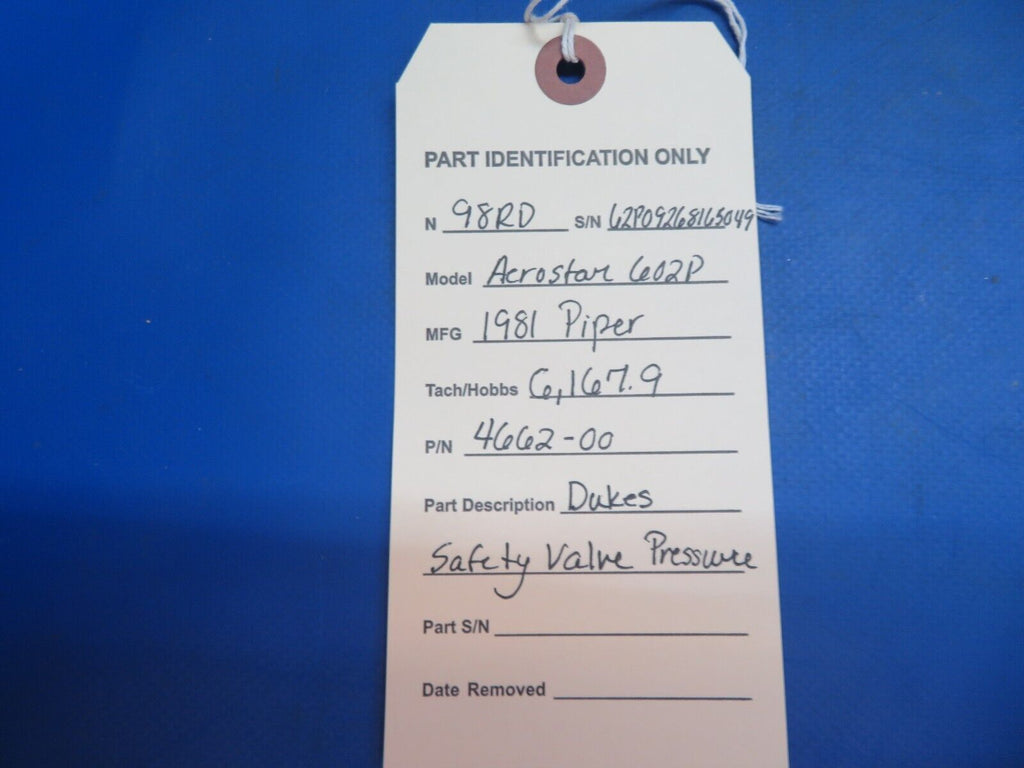 PART IDENTIFICATION ONLY
N 98RD S/N 62P09268165049
Model Aerostar 602P
MFG 1981 Piper
Tach/Hobbs 6,167.9
P/N 4662-00
Part Description Dukes
Safety Valve Pressure
Part S/N
Date Removed